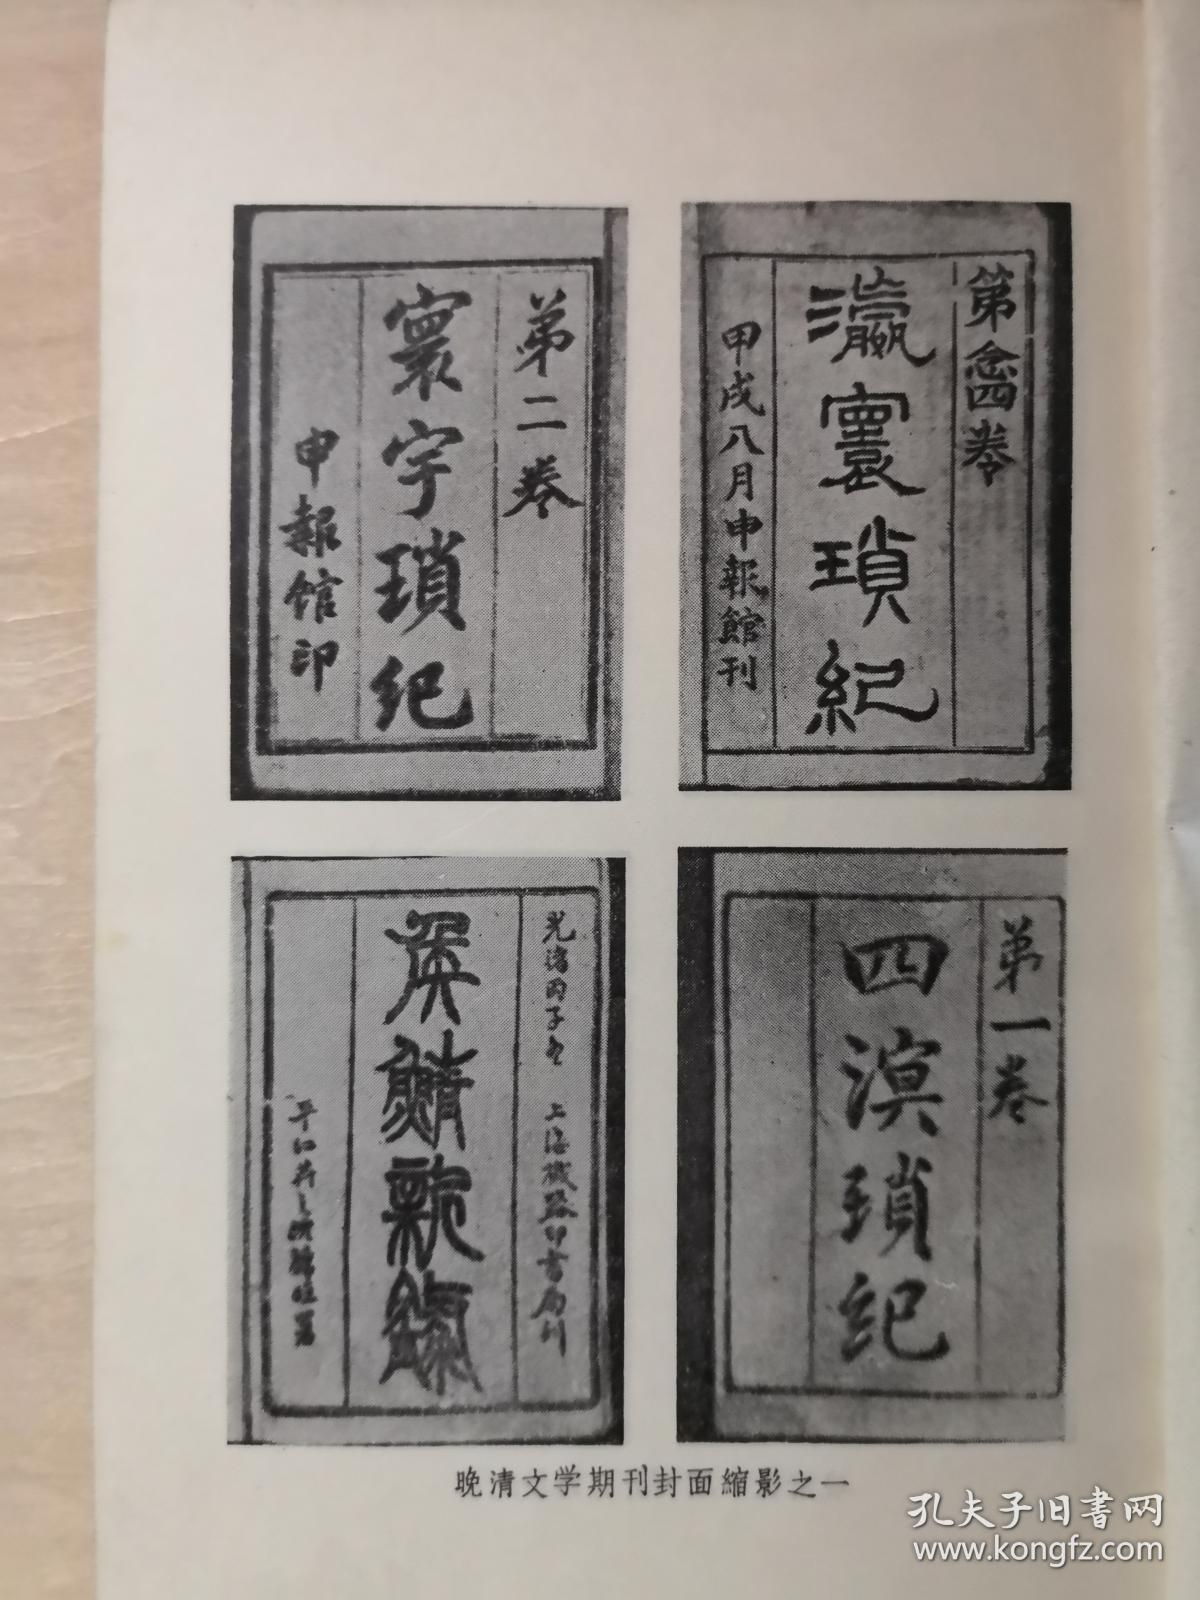 第念四卷
瀛寰瑣紀
甲戌八月申報館刊
第二卷
寰宇瑣紀
申報館印
第一卷
四溟瑣紀
光緒丙子冬 上海機器印書局刊
侯鯖新錄
平江
晚清文学期刊封面縮影之一
孔夫子旧书网
www.kongfz.com